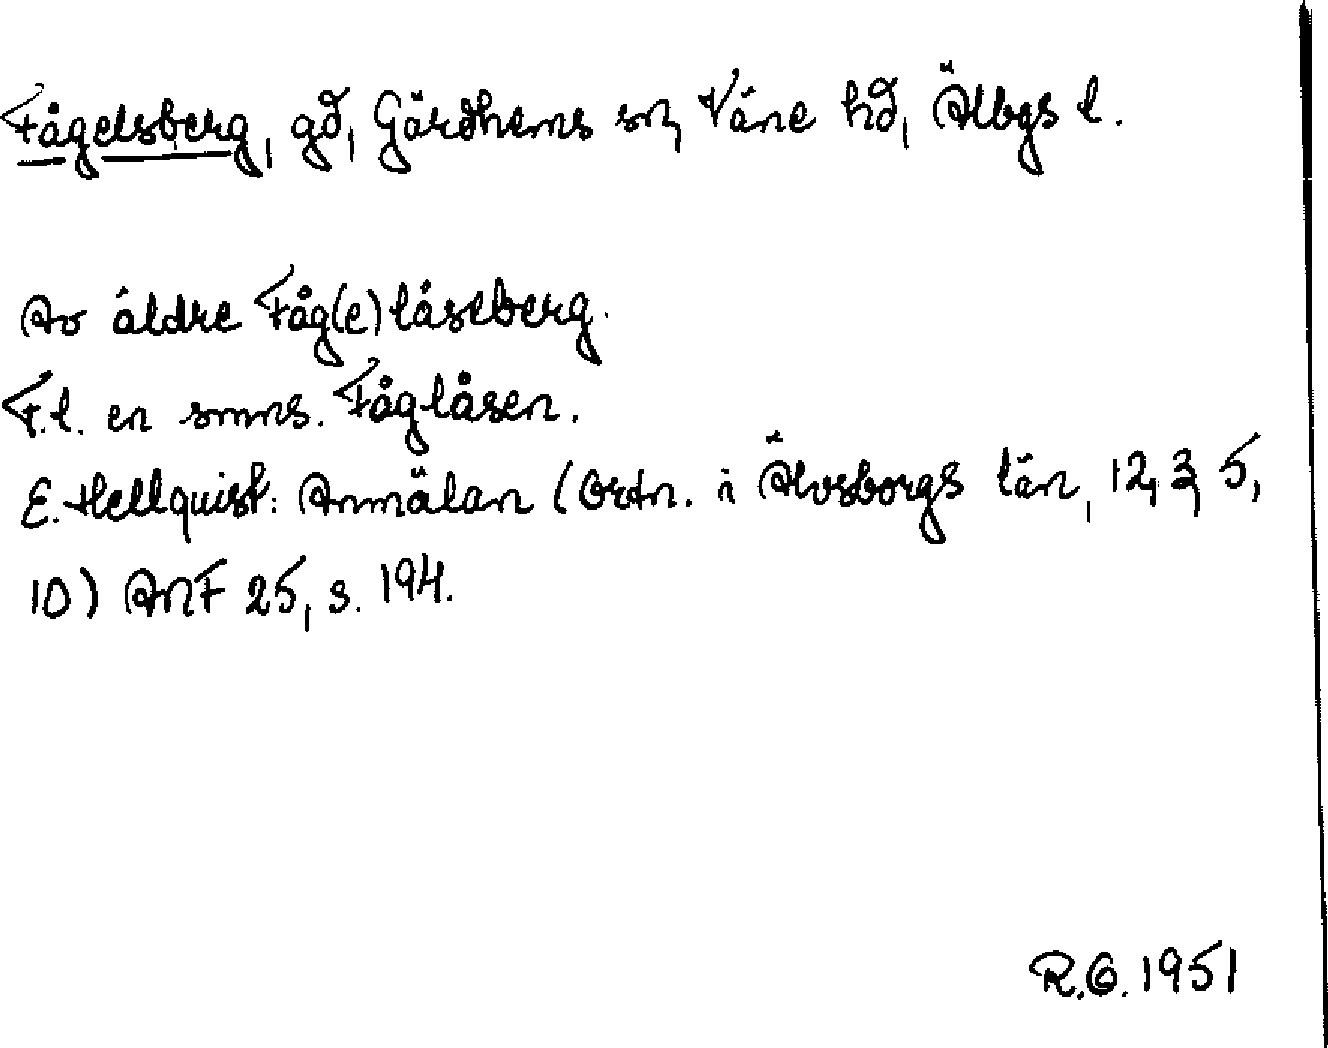 Fågelsberg, gd, Gärdhems sn, Väne hd, Älbgs l.
Av äldre Fåg(e)låseberg.
F.l. en smns. Fåglåsen.
E. Hellquist: Anmälan (Ortn. i Älvsborgs län, 12, 3, 5,
10) ANF 25, s. 194.
R.O. 1951